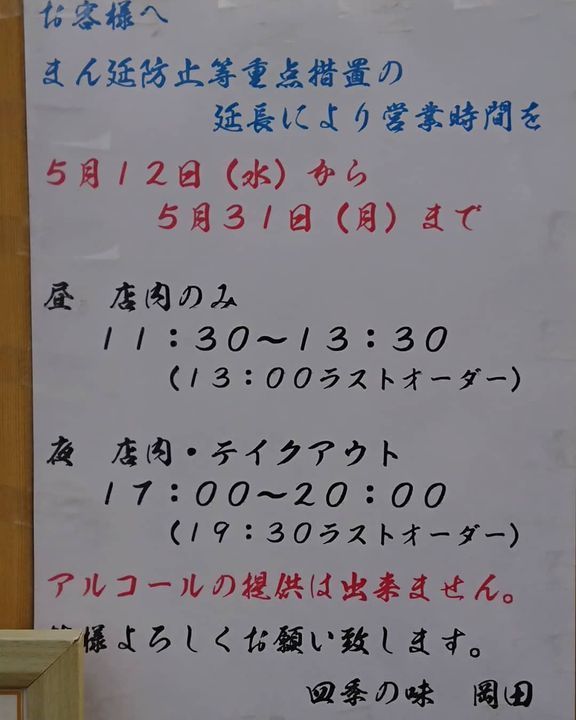 お客様へ
まん延防止等重点措置の
延長により営業時間を
5月12日（水）から
5月31日（月）まで
昼　店内のみ
11：30～13：30
（13：00ラストオーダー）
夜　店内・テイクアウト
17：00～20：00
（19：30ラストオーダー）
アルコールの提供は出来ません。
様よろしくお願い致します。
四季の味　岡田